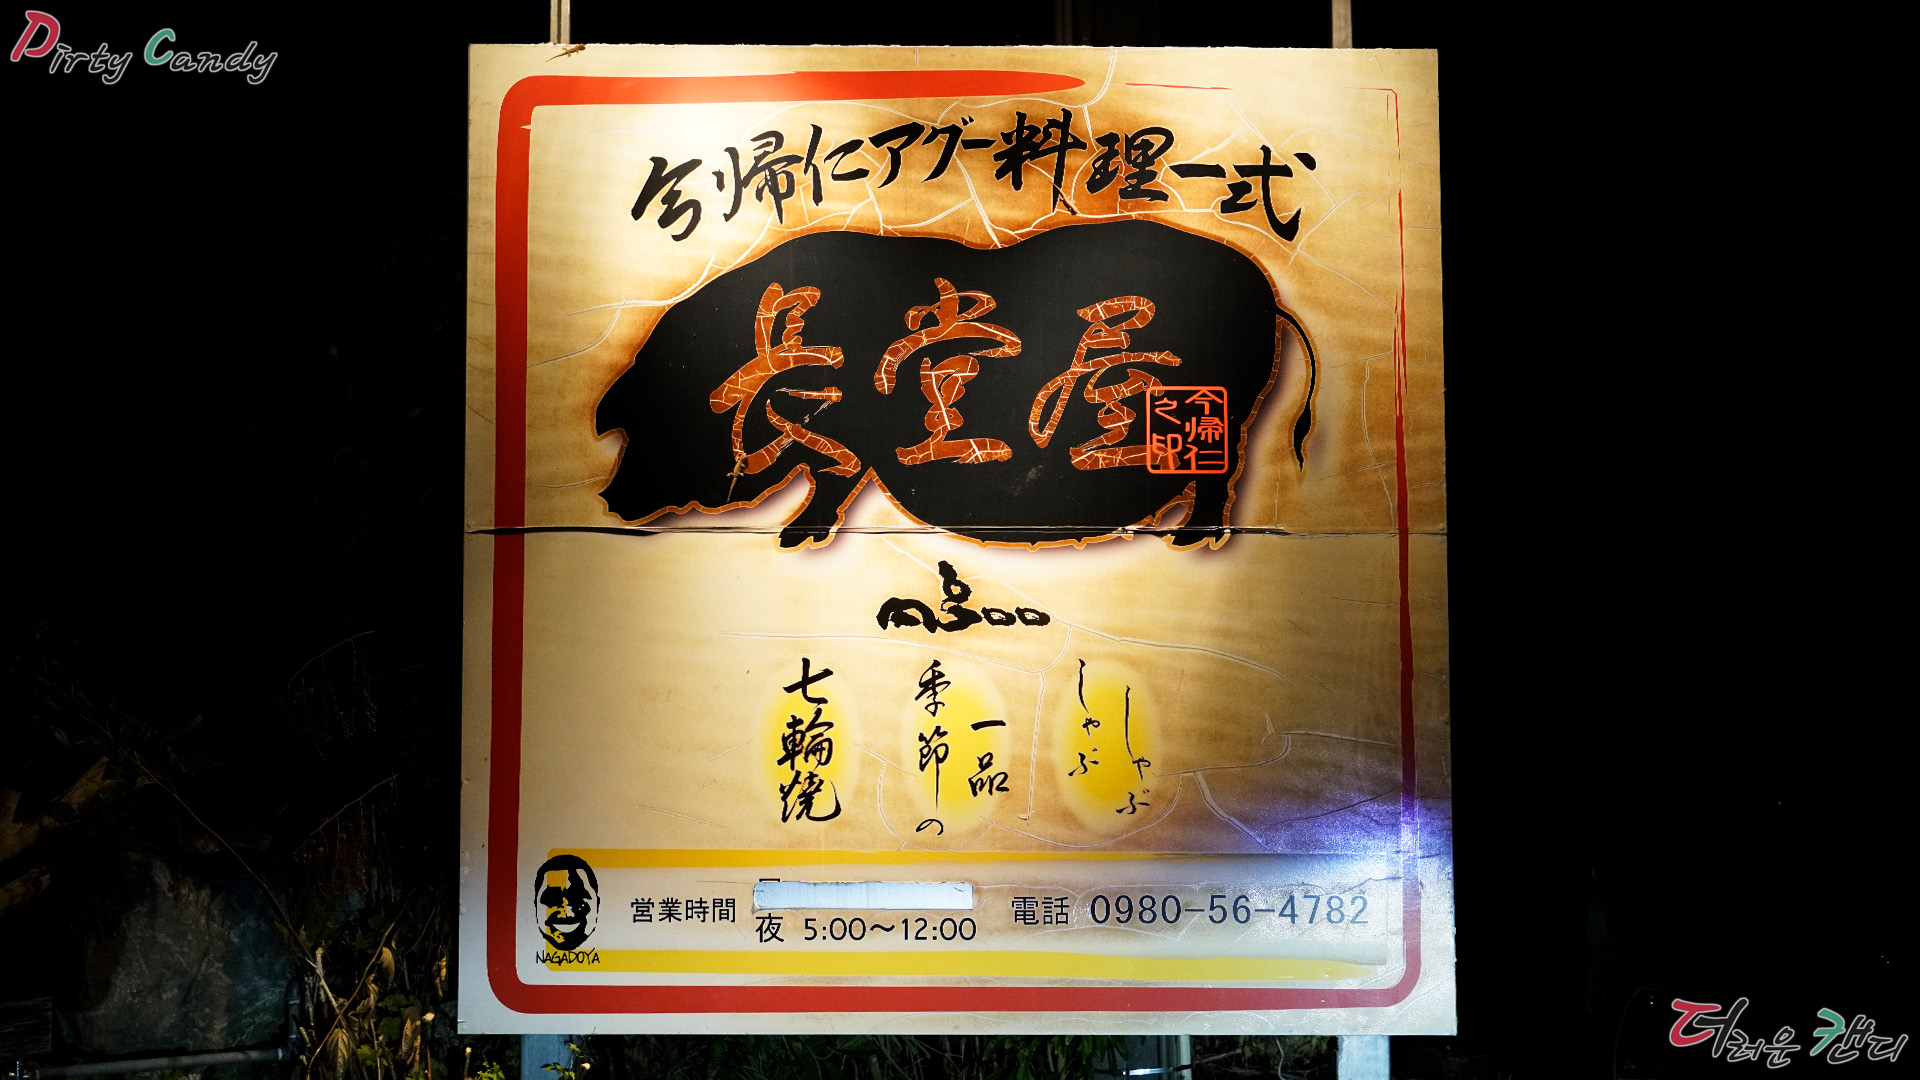 Dirty Candy
今帰仁アグー料理一式
長堂屋
今帰仁
之印
七輪焼
季節の
一品
しゃぶ
しゃぶ
NAGADOYA
営業時間
夜 5:00～12:00
電話 0980-56-4782
더러운 캔디